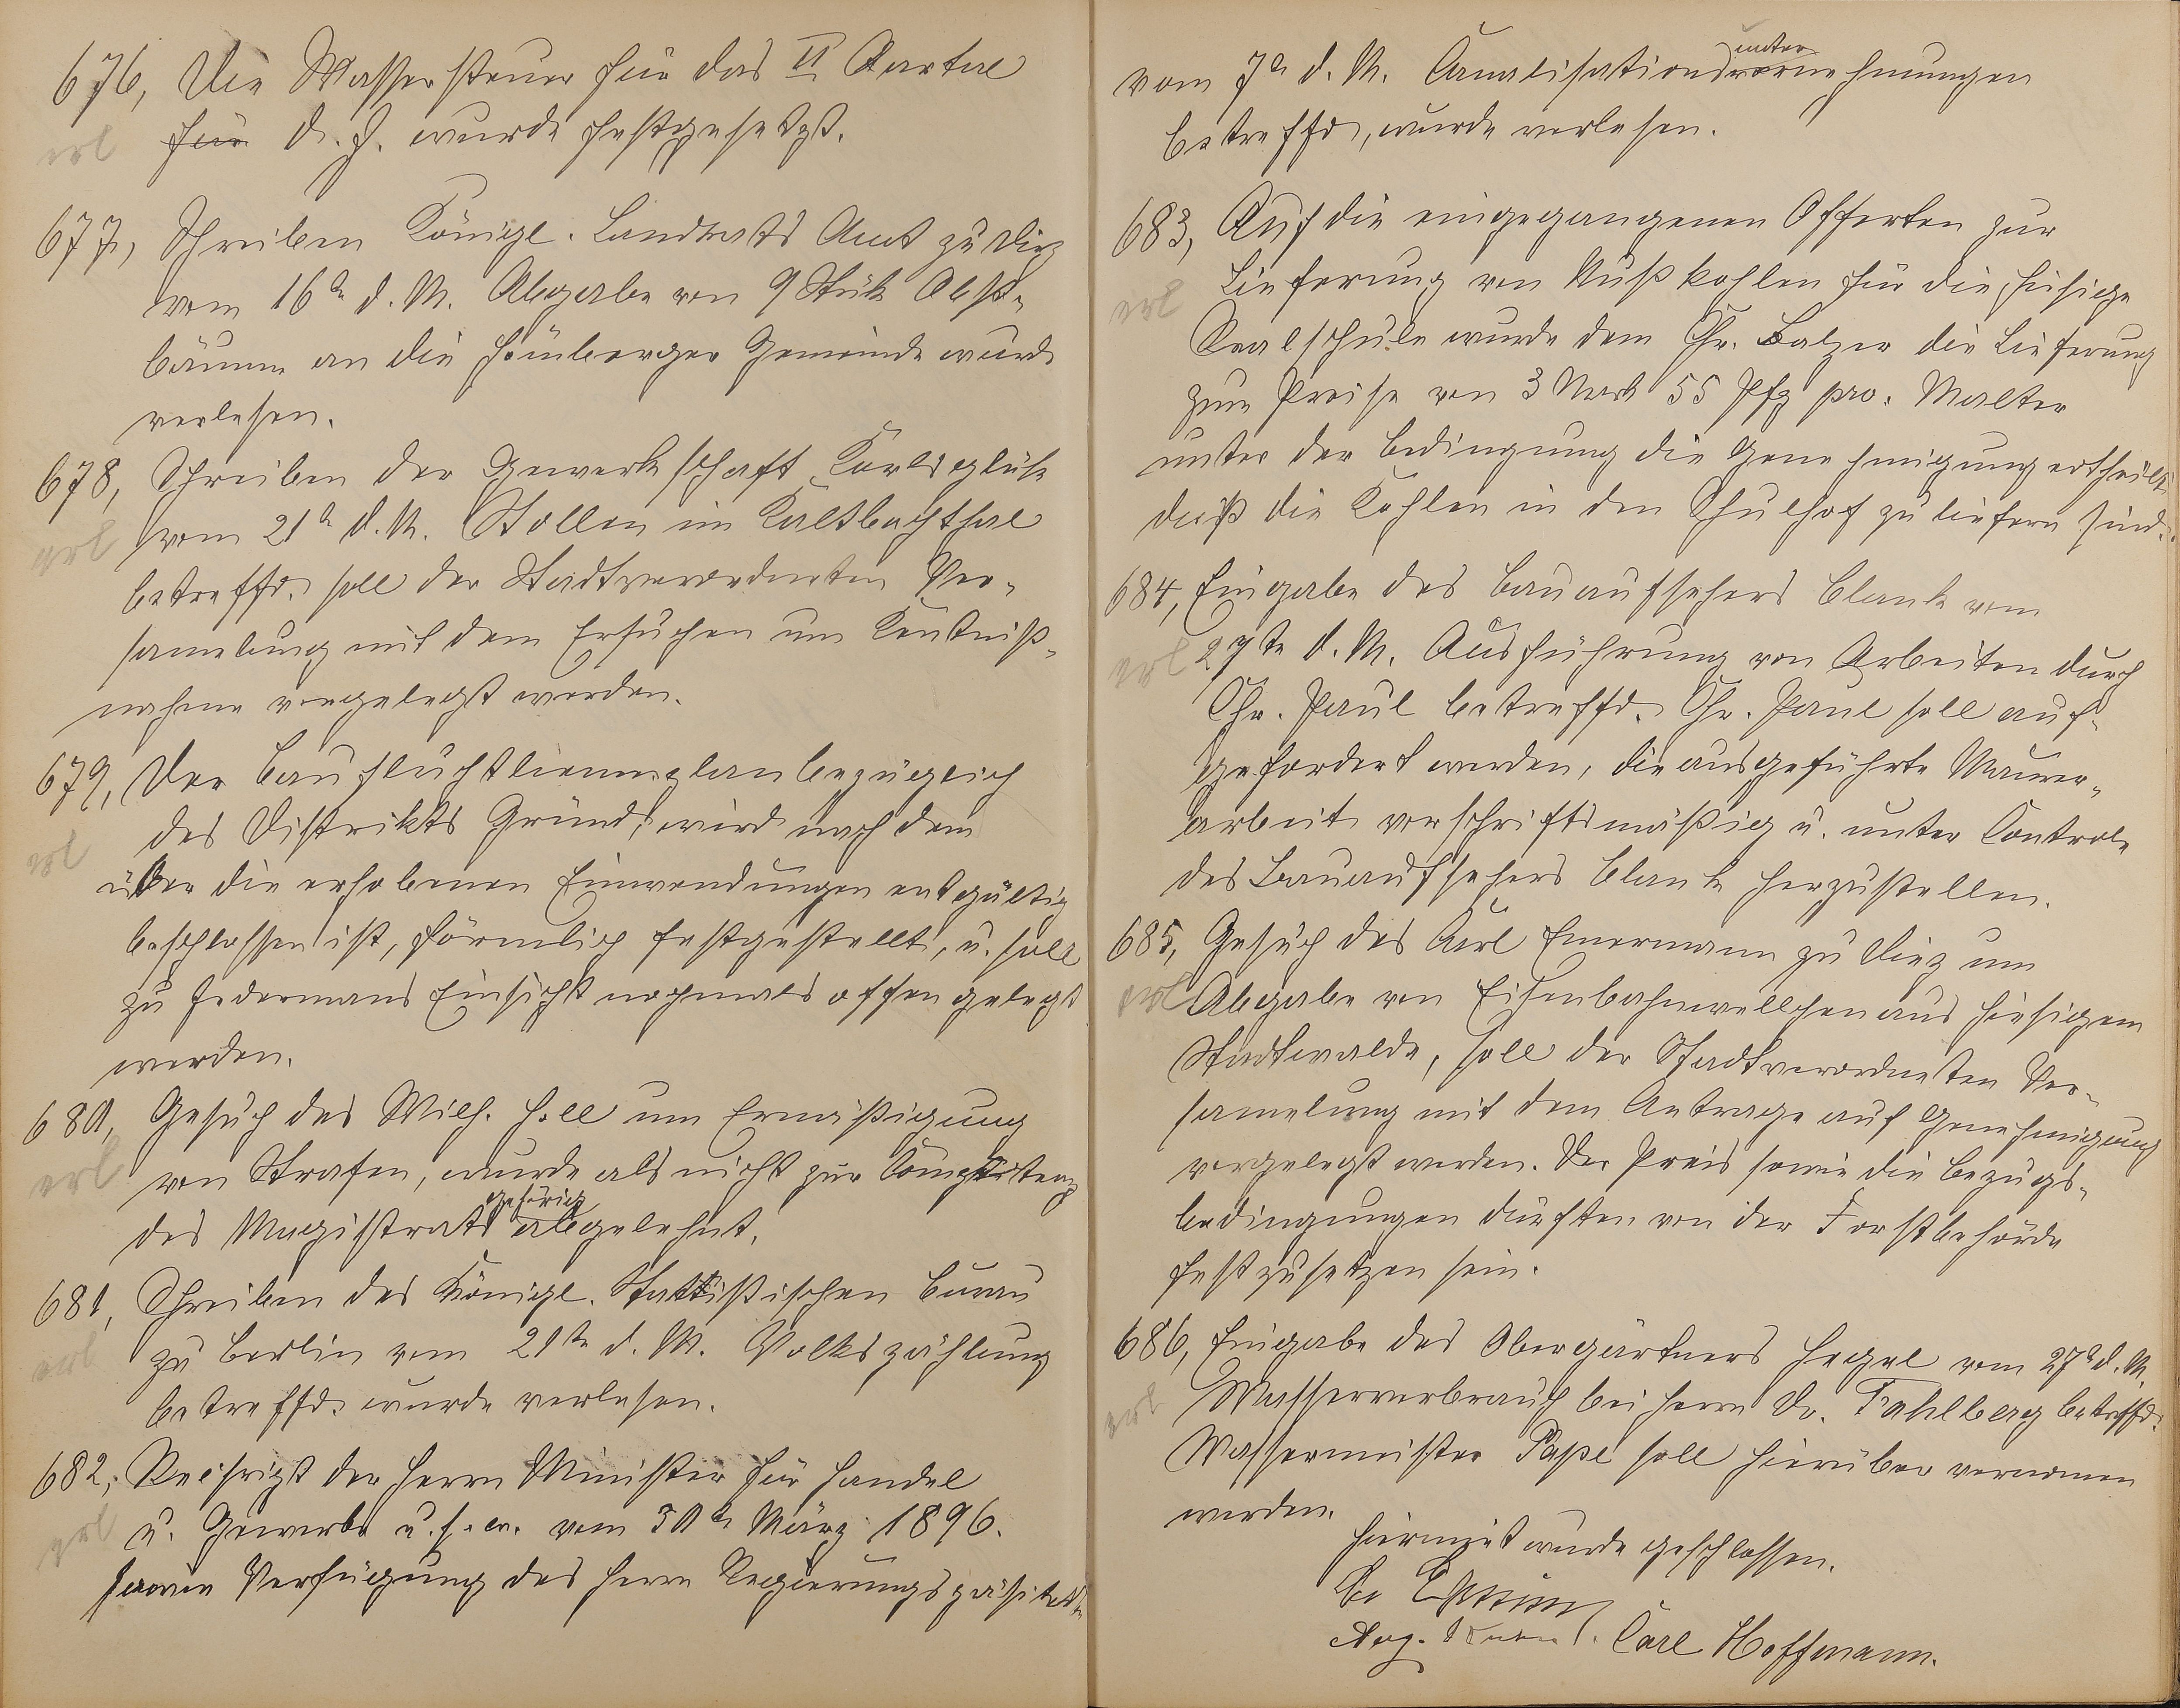 676, Die Wassersteuer für das II Quartal
erl für d. J. wurde festgesetzt.
677, Schreiben Königl. Landrats Amt zu Diez
vom 16ten d. M. Abgabe von 9 Stük Obst-
bäume an die Hömberger Gemeinde wurde
verlesen.
678, Schreiben der Gewerkschaft Karlsglück
erl vom 21ten d. M. Stollen im Kaltbachthal
betreffd. soll der Stadtverordneten Ver-
samelung mit dem Ersuchen um Kentniß-
nahme vorgelegt werden.
679, Der Baufluchtlinienplan bezüglich
des Distrikts Gründ, wird nach dem
erl über die erhobenen Einwendungen entgültig
beschlossen ist, förmlich festgestellt, u. soll
zu Jedermans Einsicht nochmals offen gelegt
werden.
680, Gesuch des Wilh. Holl um Ermäßigung
erl von Strafen, wurde als nicht zur Competenz
des Magistrats gehörig abgelehnt.
681, Schreiben des Königl. Statistischen Bureau
erl zu Berlin vom 21ten d. M. Volkszählung
betreffd. wurde verlesen.
682, Rescript der Herrn Minister für Handel
erl u. Gewerbe u. s. w. vom 30ten März 1896.
sowie Verfügung des Herrn Regierungspräsitett
vom 7ten d. M. Canalisationsvorunternehmungen
betreffd, wurde verlesen.
683, Auf die eingegangenen Offerten zur
erl Lieferung von Nußkohlen für die hiesige
Realschule wurde dem Chr. Balzer die Lieferung
zum Preise von 3 Mark 55 Pfg pro. Malter
unter der Bedingung die Genehmigung ertheilt,
daß die Kohlen in den Schulhof zu liefern sind.
684, Eingabe des Bauaufsehers Blank vom
erl 27te d. M. Ausführung von Arbeiten durch
Chr. Paul betreffd. Chr. Paul soll auf-
gefordert werden, die ausgeführte Maurer-
arbeit vorschriftsmäßig u. unter Controle
des Bauaufsehers Blank herzustellen.
685, Gesuch des Karl Emermann zu Diez um
erl Abgabe von Eisenbahnwellchen aus hiesigem
Stadtwalde, soll der Stadtverordneten Ver-
samelung mit dem Antrage auf Genehmigung
vorgelegt werden. Der Preis sowie die Bezugs-
bedingungen dürften von der Forstbehörde
festzusetzen sein.
686, Eingabe des Obergärtners Hegel vom 27ten d. M.
erl Wasserverbrauch bei Herrn Dr. Fahlberg betreffd.
Wassermeister Pape soll hierüber vernomen
werden.
Hiermit wurde geschlossen.
Aug. Carl Hoffmann.